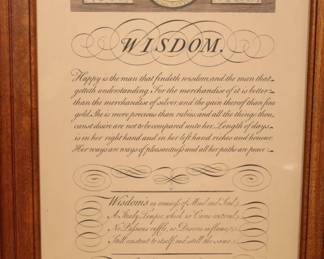 WISDOM.
Happy is the man that findeth wisdom, and the man that
getteth understanding. For the merchandise of it is better
than the merchandise of silver, and the gain thereof than fine
gold. She is more precious than rubies and all the things thou
canst desire are not to be compared unto her. Length of days
is in her right hand and in her left hand riches and honour.
Her ways are ways of pleasantness and all her paths are peace
Wisdom's an evenness of Mind and Soul,
A Steady Temper which no Cares controul,
No Passions ruffle, no Desires inflame,
Still constant to itself and still the same